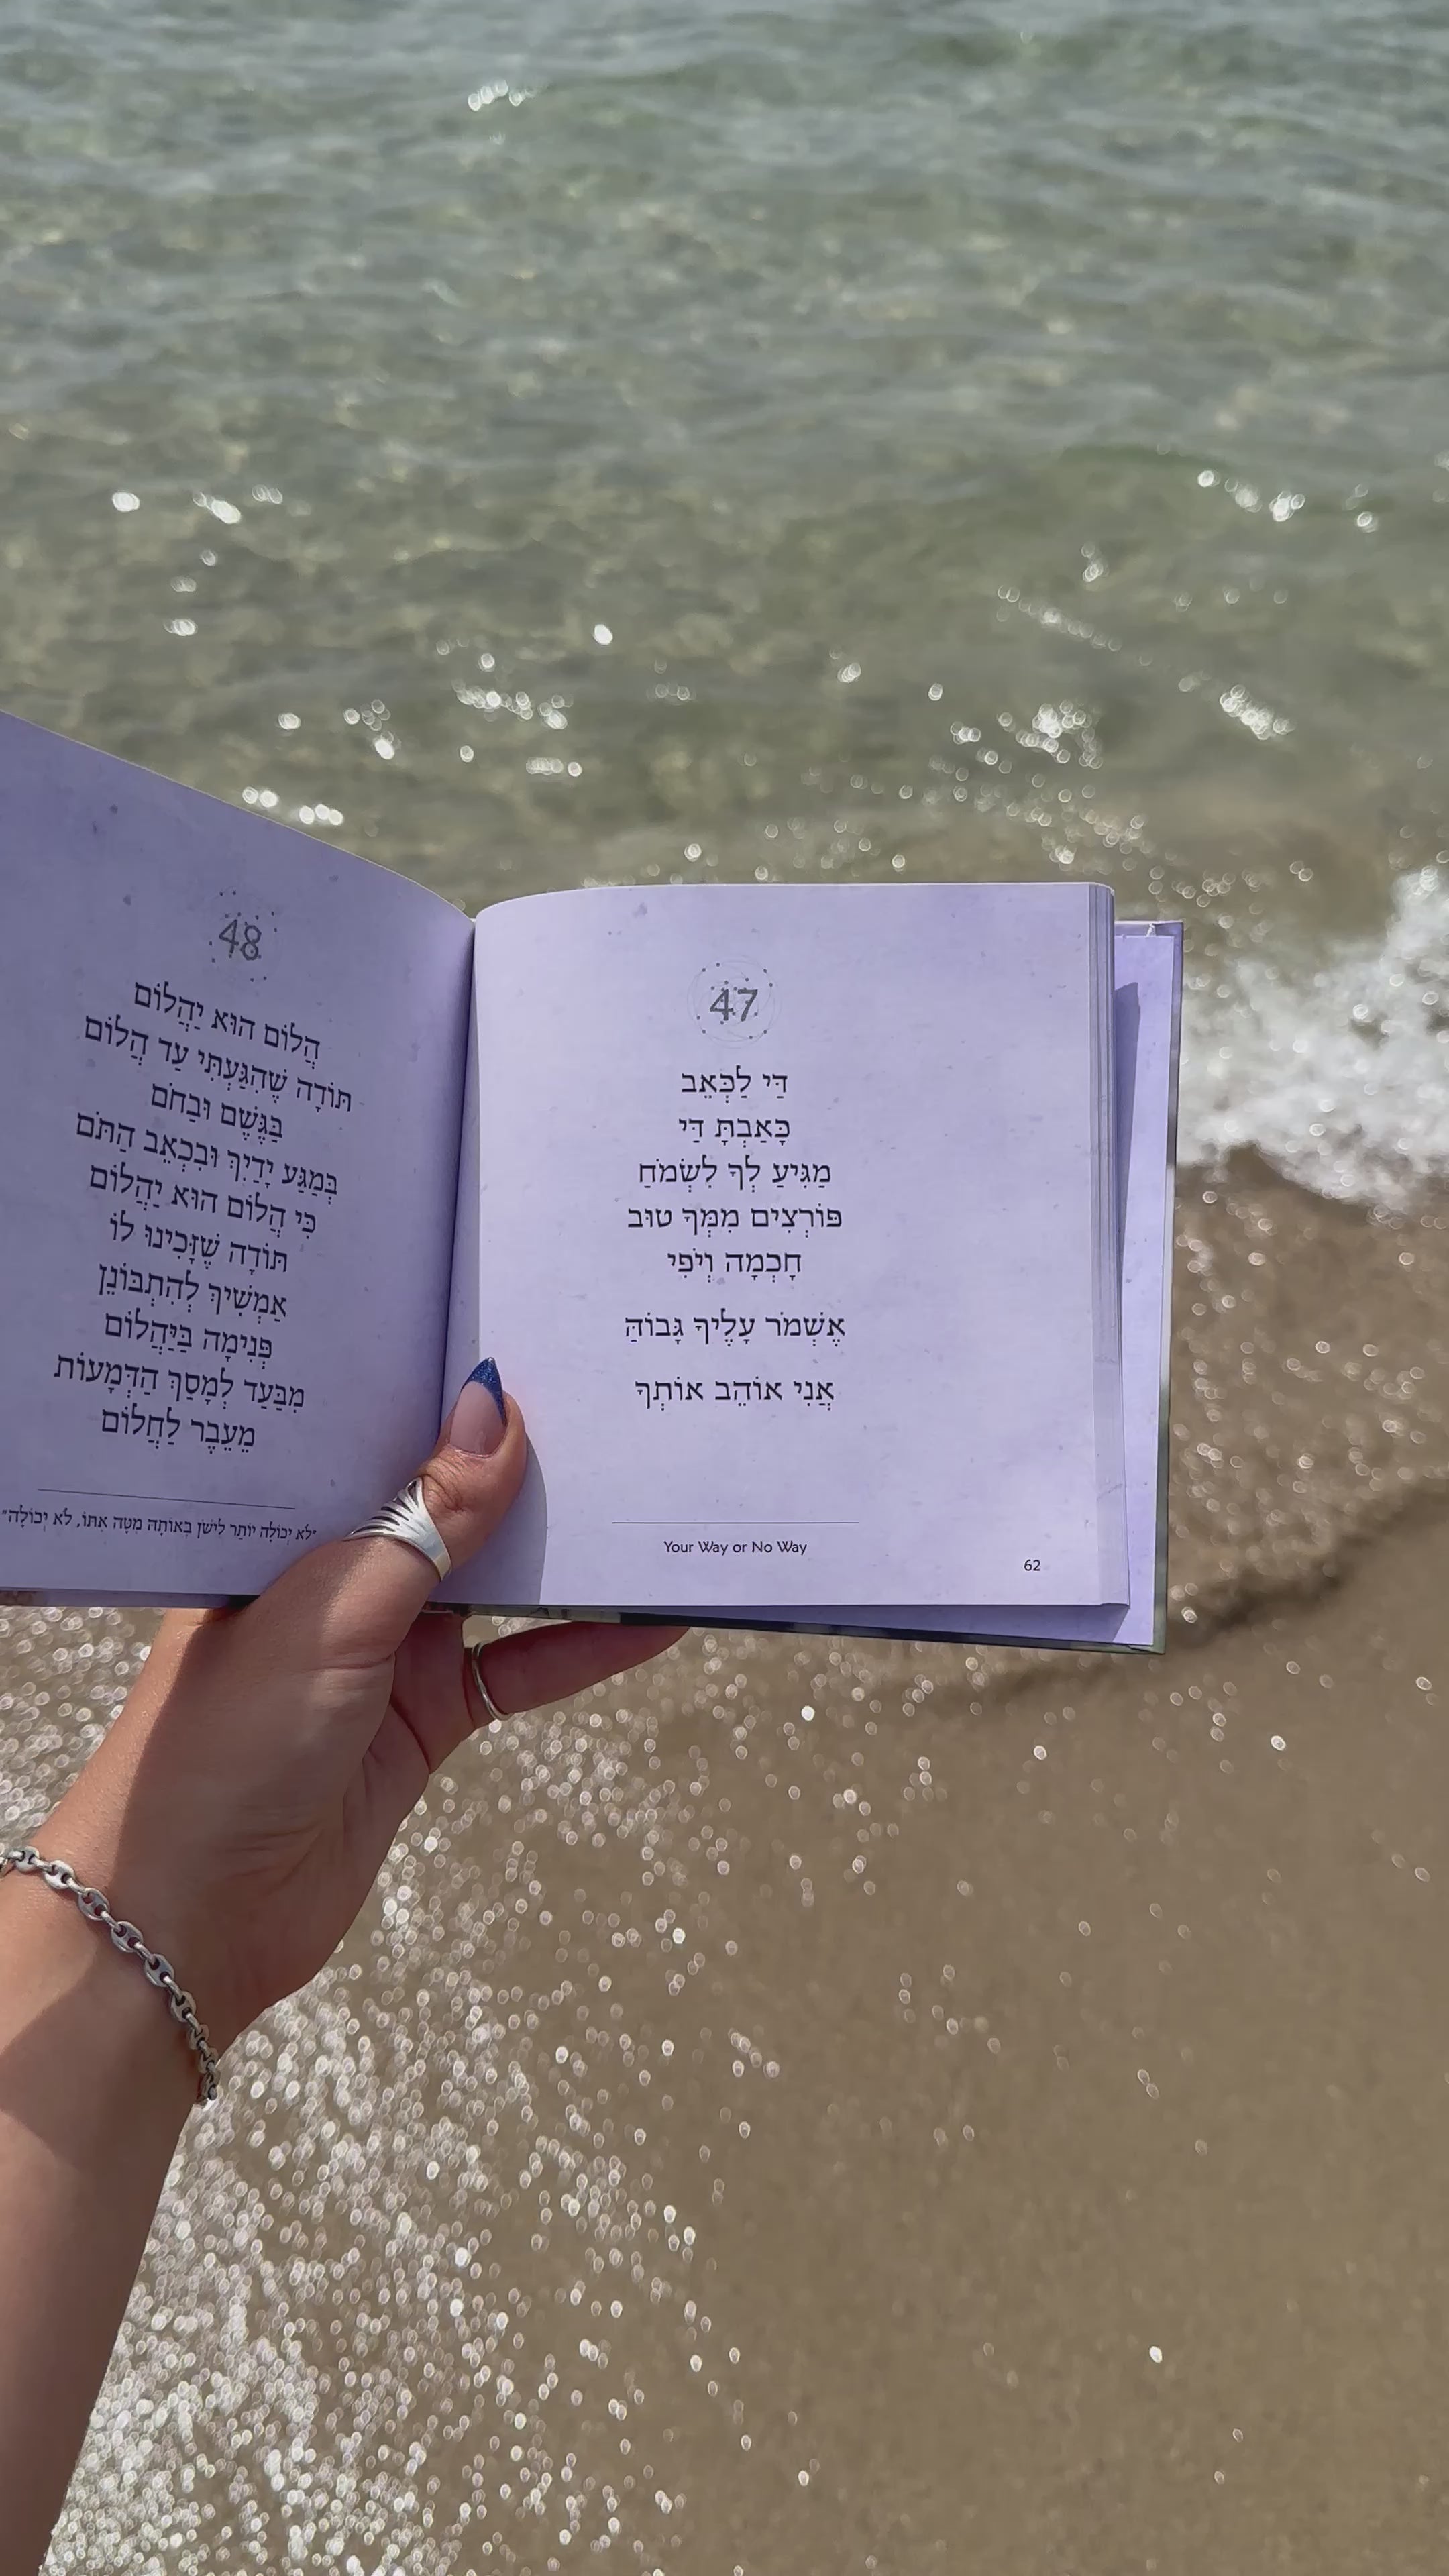 47
דַּי לַכְּאֵב
כָּאַבְתָּ דַּי
מַגִּיעַ לְךָ לִשְׂמֹחַ
פּוֹרְצִים מִמְּךָ טוּב
חָכְמָה וְיֹפִי
אֶשְׁמֹר עָלֶיךָ גָּבוֹהַּ
אֲנִי אוֹהֵב אוֹתְךָ
Your Way or No Way
62
48
הֲלוֹם הוּא יַהֲלוֹם
תּוֹדָה שֶׁהִגַּעְתִּי עַד הֲלוֹם
בַּגֶּשֶׁם וּבַחֹם
בְּמַגַּע יָדַיִךְ וּבִכְאֵב הַתֹּם
כִּי הֲלוֹם הוּא יַהֲלוֹם
תּוֹדָה שֶׁזָּכִינוּ לוֹ
אַמְשִׁיךְ לְהִתְבּוֹנֵן
פְּנִימָה בַּיַּהֲלוֹם
מִבַּעַד לְמָסַךְ הַדְּמָעוֹת
מֵעֵבֶר לַחֲלוֹם
"לֹא יְכוֹלָה יוֹתֵר לִישֹׁן בְּאוֹתָהּ מִטָּה אִתּוֹ, לֹא יְכוֹלָה"